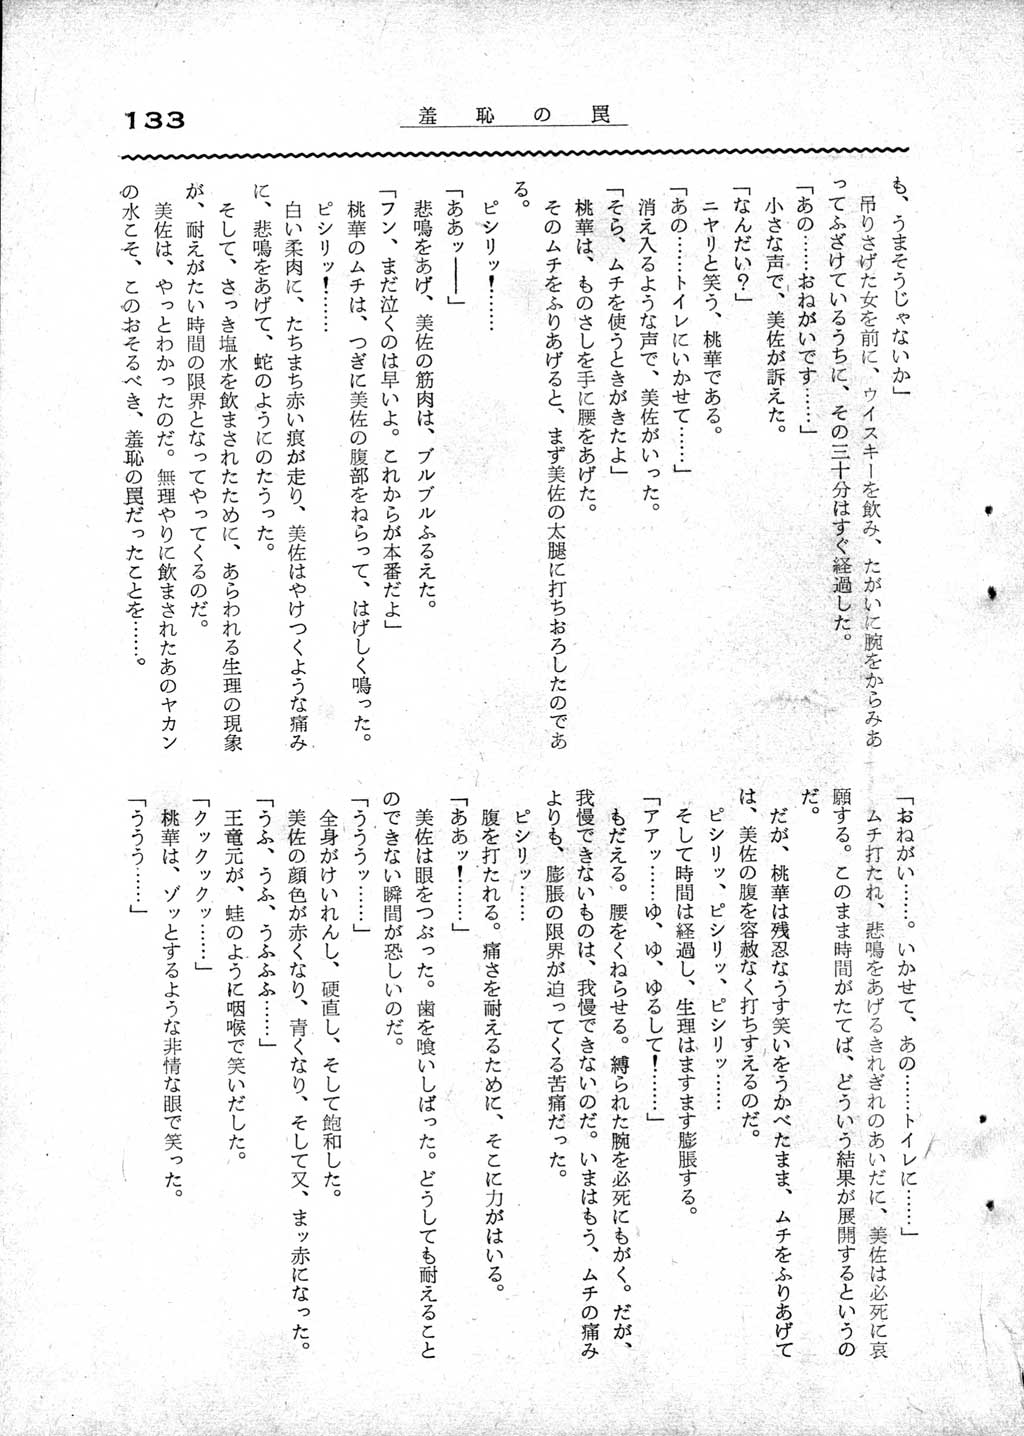 133
羞恥の罠
も、うまそうじゃないか」
　吊りさげた女を前に、ウイスキーを飲み、たがいに腕をからみあ
ってふざけているうちに、その三十分はすぐ経過した。
「あの……おねがいです……」
　小さな声で、美佐が訴えた。
「なんだい？」
　ニヤリと笑う、桃華である。
「あの……トイレにいかせて……」
　消え入るような声で、美佐がいった。
「そら、ムチを使うときがきたよ」
　桃華は、ものさしを手に腰をあげた。
　そのムチをふりあげると、まず美佐の太腿に打ちおろしたのであ
る。
　ピシリッ！……
「ああッ――」
　悲鳴をあげ、美佐の筋肉は、ブルブルふるえた。
「フン、まだ泣くのは早いよ。これからが本番だよ」
　桃華のムチは、つぎに美佐の腹部をねらって、はげしく鳴った。
　ピシリッ！……
　白い柔肉に、たちまち赤い痕が走り、美佐はやけつくような痛み
に、悲鳴をあげて、蛇のようにのたうった。
　そして、さっき塩水を飲まされたために、あらわれる生理の現象
が、耐えがたい時間の限界となってやってくるのだ。
　美佐は、やっとわかったのだ。無理やりに飲まされたあのヤカン
の水こそ、このおそるべき、羞恥の罠だったことを……。
「おねがい……。いかせて、あの……トイレに……」
　ムチ打たれ、悲鳴をあげるきれぎれのあいだに、美佐は必死に哀
願する。このまま時間がたてば、どういう結果が展開するというの
だ。
　だが、桃華は残忍なうす笑いをうかべたまま、ムチをふりあげて
は、美佐の腹を容赦なく打ちすえるのだ。
　ピシリッ、ピシリッ、ピシリッ……
　そして時間は経過し、生理はますます膨脹する。
「アアッ……ゆ、ゆ、ゆるして！……」
　もだえる。腰をくねらせる。縛られた腕を必死にもがく。だが、
我慢できないものは、我慢できないのだ。いまはもう、ムチの痛み
よりも、膨脹の限界が迫ってくる苦痛だった。
　ピシリッ……
　腹を打たれる。痛さを耐えるために、そこに力がはいる。
「ああッ！……」
　美佐は眼をつぶった。歯を喰いしばった。どうしても耐えること
のできない瞬間が恐しいのだ。
「うううッ……」
　全身がけいれんし、硬直し、そして飽和した。
　美佐の顔色が赤くなり、青くなり、そして又、まッ赤になった。
「うふ、うふ、うふふふ……」
　王竜元が、蛙のように咽喉で笑いだした。
「クックックッ……」
　桃華は、ゾッとするような非情な眼で笑った。
「ううう……」